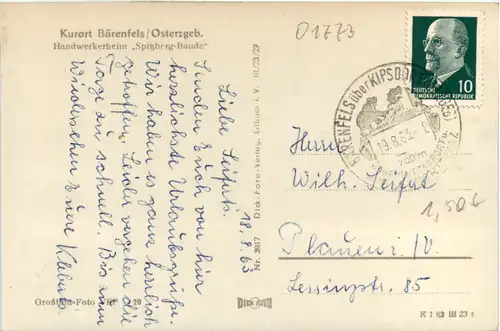 Kurort Bärenfels/Osterzgeb.
Handwerkerheim „Spitzberg-Baude"
Liebe Seiferts!
18.8.63
Senden Euch von hier
herzlichste Urlaubsgrüße.
Wir haben es ganz herrlich
getroffen. Leider vergehen die
Tage zu schnell. Bis zum
Wiedersehen Eure
Großbild-Foto
Nr. 3817 Dick-Foto-Verlag, Erlbach i. V. III/23/29
DICK-FOTO
01773
DEUTSCHE
DEMOKRATISCHE REPUBLIK
10
BÄRENFELS über KIPSDORF
19.8.63
700m
Herrn
Wilh. Seifert
1,50€
Plauen i./V.
Lessingstr. 85
K 1 63 III 23